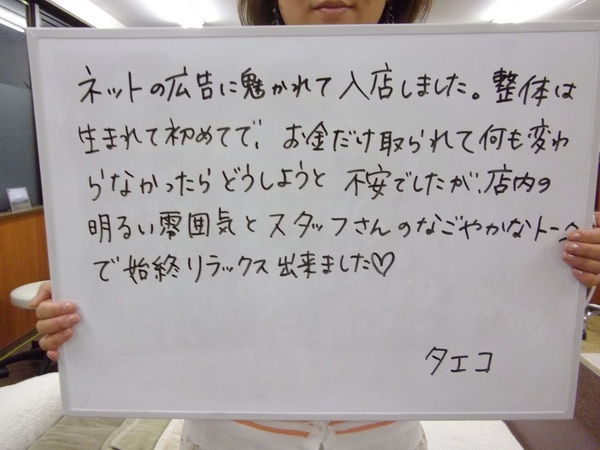 ネットの広告に魅かれて入店しました。整体は
生まれて初めてで、お金だけ取られて何も変わ
らなかったらどうしようと不安でしたが、店内の
明るい雰囲気とスタッフさんのなごやかなトーク
で始終リラックス出来ました♡
タエコ